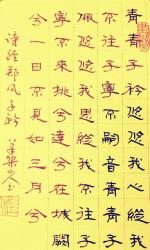 青青子衿悠悠我心縱我
不往子寧不嗣音青青子
佩悠悠我思縱我不往子
寧不來挑兮達兮在城闕
兮一日不見如三月兮
诗经郑风子衿